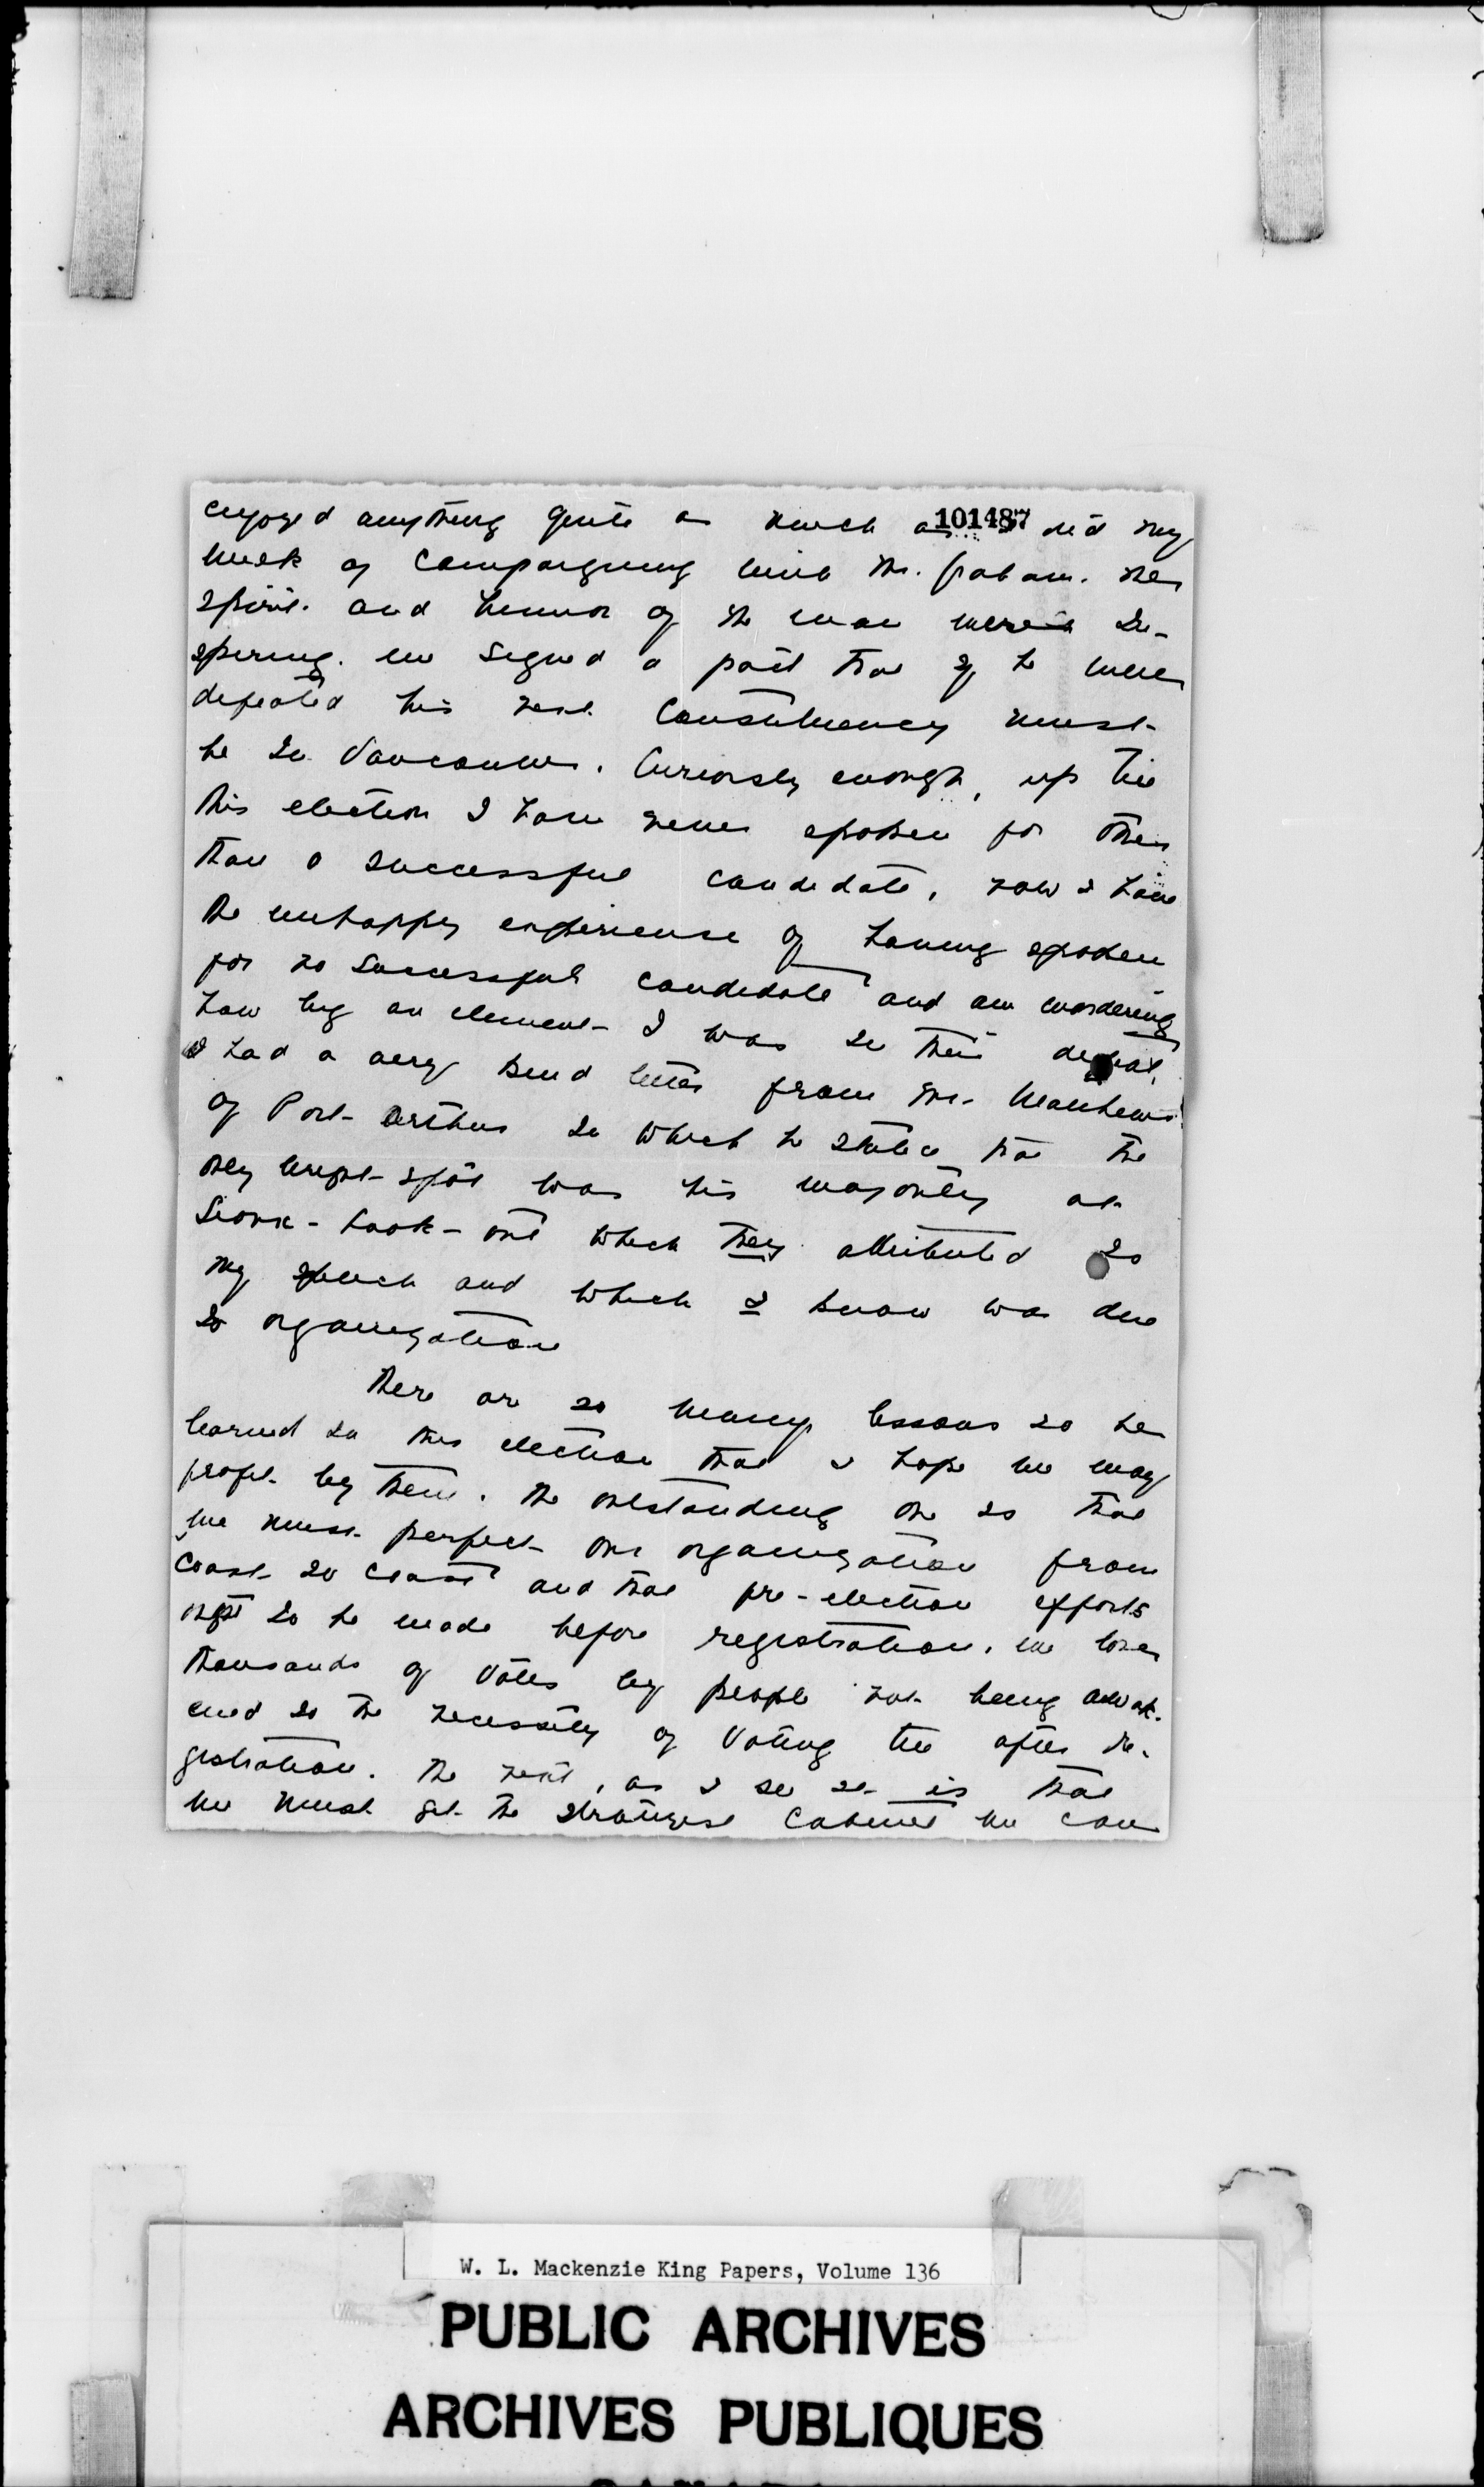 enjoyed anything quite as much as I did my
101487
week of campaigning with Mr. Graham. The
spirit and humor of the man were in-
spiring. We signed a pact that if he were
defeated his next constituency must
be in Vancouver. Curiously enough, up till
this election I have never spoken for other
than a successful candidate, now I have
the unhappy experience of having spoken
for no successful candidate and am wondering
how big an element I was in their defeat.
I had a very kind letter from Mr. Matthews
of Port Arthur in which he stated that the
only bright spot was his majority at
Sioux-Look-out which they attributed to
my speech and which I know was due
to organization
There are so many lessons to be
learned in this election that I hope we may
profit by them. The outstanding one is that
we must perfect our organization from
coast to coast and that pre-election efforts
ought to be made before registration. We lose
thousands of votes by people not being awak-
ened to the necessity of voting till after re-
gistration. The next, as I see it is that
we must get the strongest cabinet we can
W. L. Mackenzie King Papers, Volume 136
PUBLIC ARCHIVES
ARCHIVES PUBLIQUES
CANADA